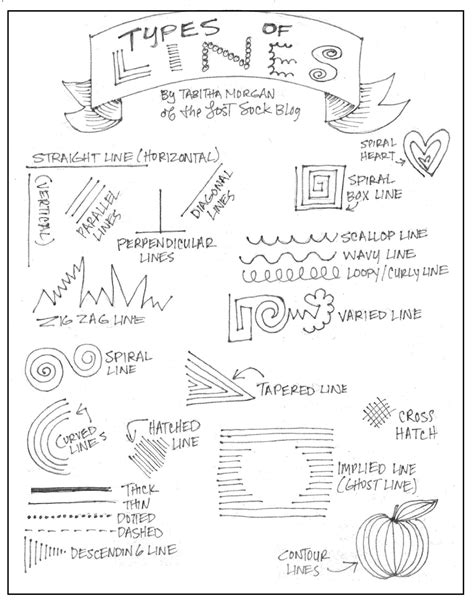 TYPES OF
LINES
By TABITHA MORGAN
of the Lost Sock Blog
SPIRAL
HEART
STRAIGHT LINE (HORIZONTAL)
(VERTICAL)
PARALLEL
LINES
PERPENDICULAR
LINES
DIAGONAL
LINES
SPIRAL
BOX LINE
SCALLOP LINE
WAVY LINE
LOOPY/CURLY LINE
ZIG ZAG LINE
VARIED LINE
SPIRAL
LINE
TAPERED LINE
CURVED
LINES
HATCHED
LINE
CROSS
HATCH
THICK
THIN
DOTTED
DASHED
DESCENDING LINE
IMPLIED LINE
(GHOST LINE)
CONTOUR
LINES